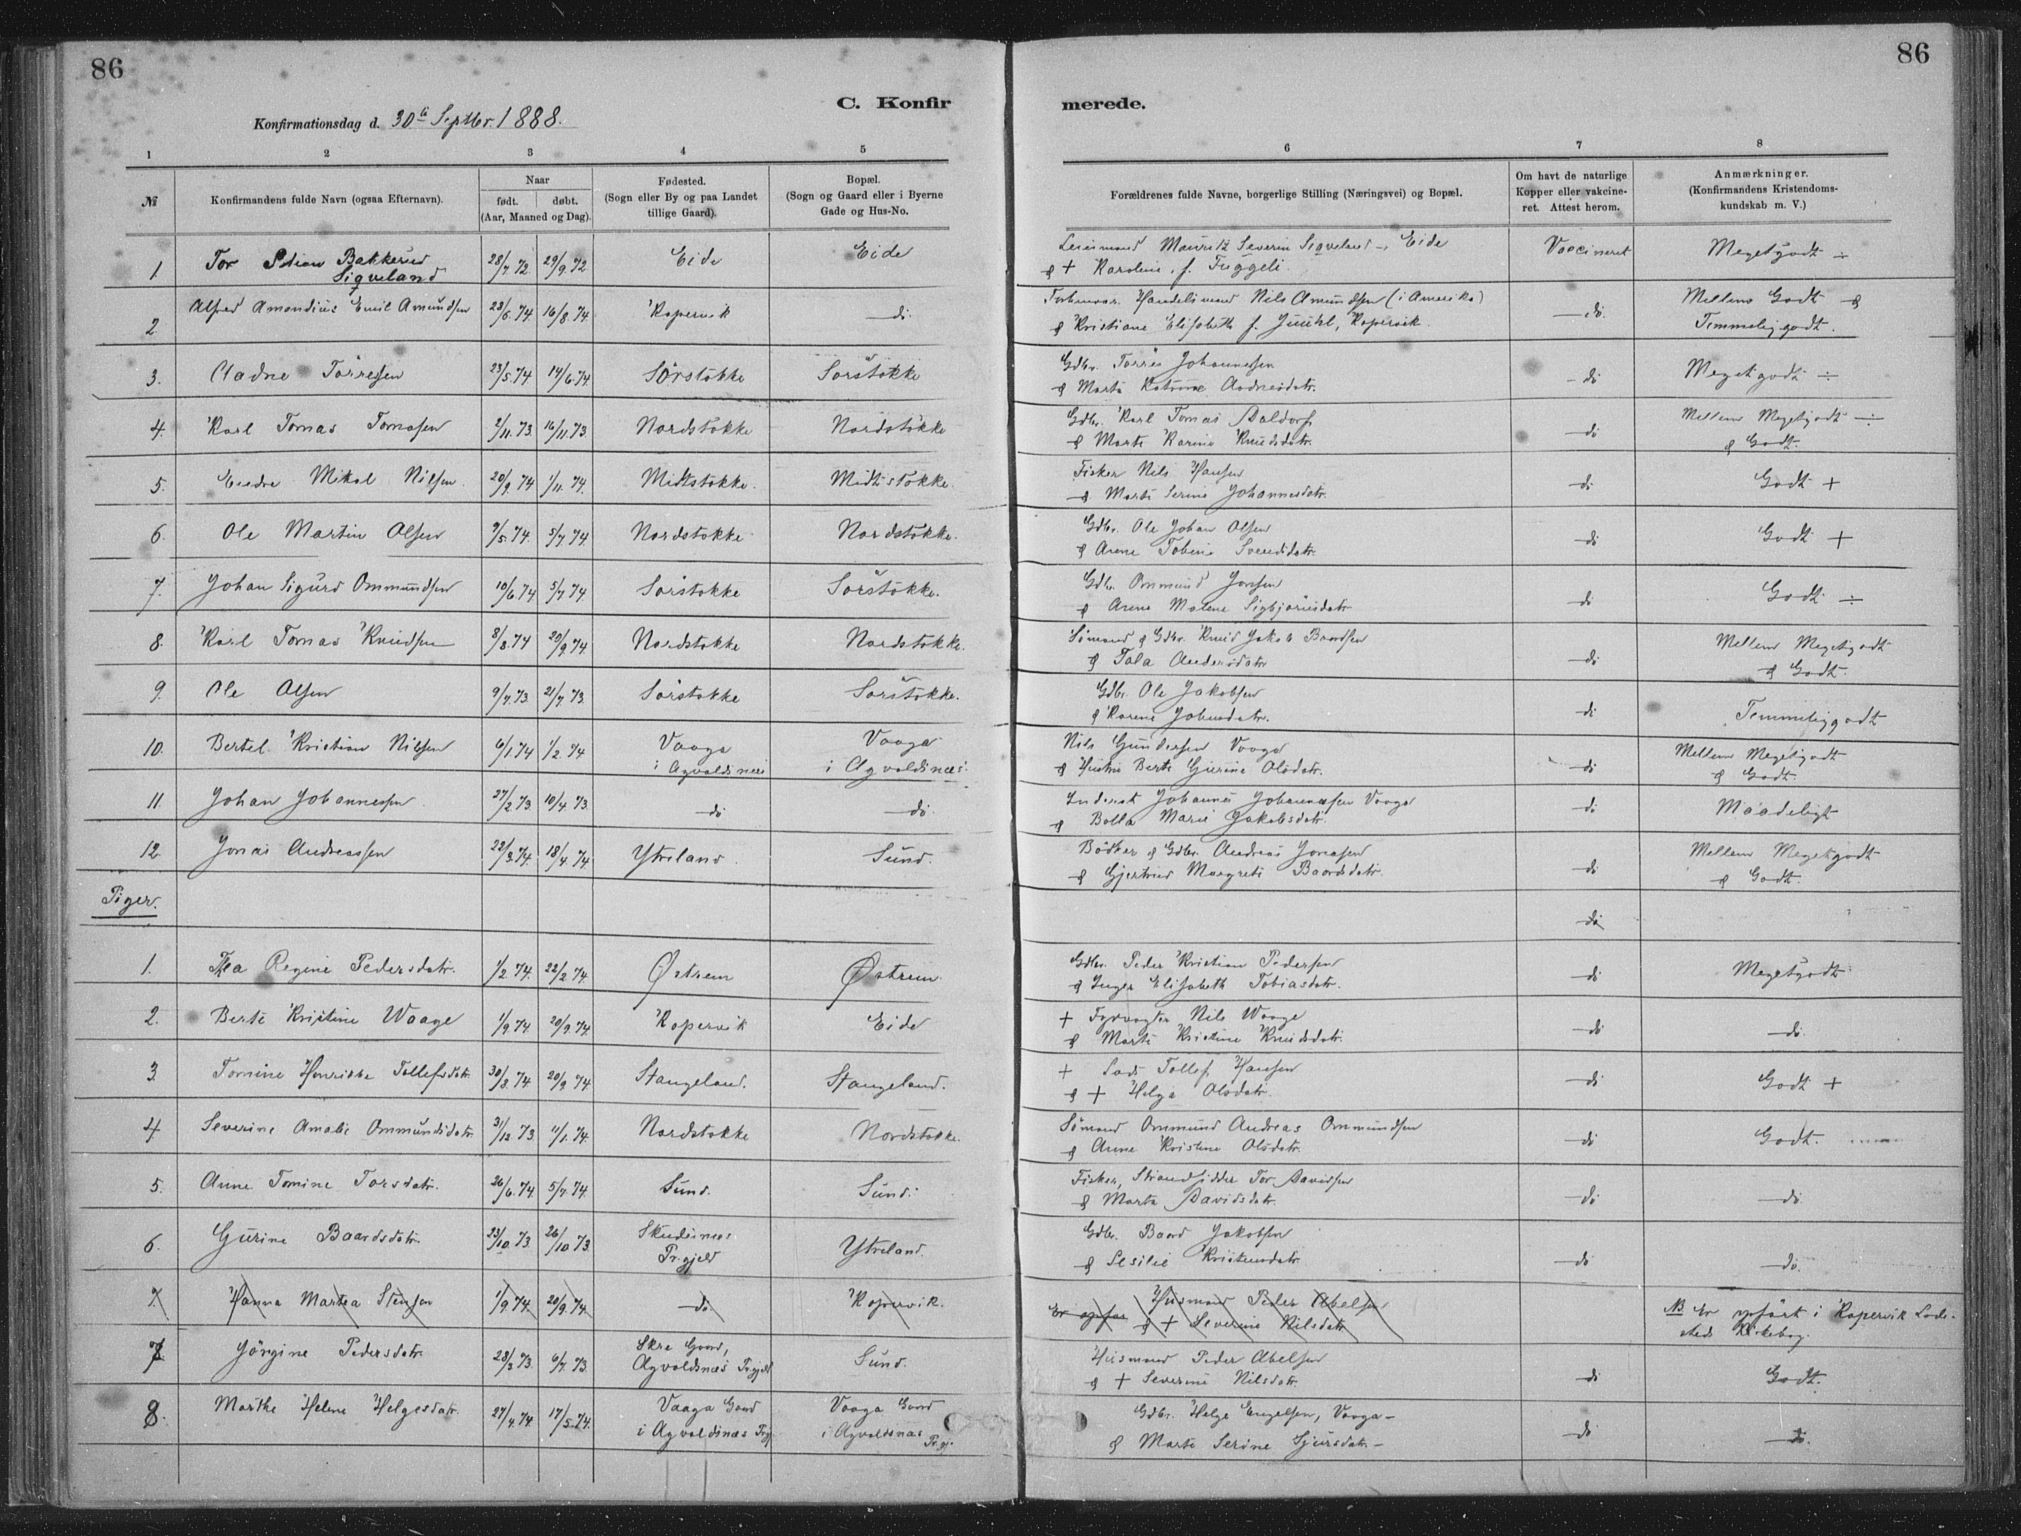 86
86
C. Konfir
merede.
Konfirmationsdag d. 30te Septbr. 1888.
1 2 3 4 5 6 7 8
№
Konfirmandens fulde Navn (ogsaa Efternavn).
Naar
født. døbt.
(Aar, Maaned og Dag).
Fødested.
(Sogn eller By og paa Landet
tillige Gaard).
Bopæl.
(Sogn og Gaard eller i Byerne
Gade og Hus-No.
Forældrenes fulde Navne, borgerlige Stilling (Næringsvei) og Bopæl.
Om havt de naturlige
Kopper eller vakcine-
ret. Attest herom.
Anmærkninger.
(Konfirmandens Kristendoms-
kundskab m. V.)
1 Tor Bakkerud Sigveland 28/7 72 29/9 72 Eide Eide Mauritz Severin Sigveland, Eide Vaccineret Megetgodt ÷
& + Karoline, f. Tuggeli.
2. Alfred Amandius Emil Amundsen 23/6 74 16/8 74 Kopervik do. Handelsmand Nils Amundsen (i Amerika) do. Mellem Godt &
& Kristiane Elisabeth f. Juuhl, Kopervik. Temmeliggodt.
3. Aadne Tørresen 23/5 74 14/6 74 Sørstokke Sørstokke Gdbr. Tørres Johannessen do Megetgodt ÷
& Marta Katrine Aadnesdatr.
4. Karl Tomas Tomasen 2/11 73. 16/11 73. Nordstokke Nordstokke Gdbr. Karl Tomas Daldorf do Mellem Megetgodt ÷
& Marte Karine Knudsdatr. & Godt.
5. Endre Mikal Nilsen. 20/9 74 1/11 74. Midtstokke. Midtstokke. Fisker Nils Hansen do Godt +
& Marte Serine Johannesdatr.
6. Ole Martin Olsen 9/5 74. 5/7 74. Nordstokke Nordstokke. Gdbr. Ole Johan Olsen do Godt +
& Anne Tobine Svendsdatr.
7. Johan Sigurd Ommundsen 10/6 74 5/7 74. Sørstokke Sørstokke. Gdbr. Ommund Jonsen do Godt ÷
& Anne Malene Sigbjørnsdatr
8. Karl Tomas Knudsen 8/8 74 20/9 74 Nordstokke Nordstokke. Sømand & Gdbr. Knud Jakob Baardsen do Mellem Megetgodt
& Tala Andersdatr & Godt.
9. Ole Olsen 9/7 73. 21/7 73. Sørstokke Sørstokke. Gdbr. Ole Jakobsen do Temmeliggodt
& Karene Johnsdatr.
10. Bertel Kristian Nilsen 6/1 74 1/2 74 Vaaga Vaaga Nils Gundersen Vaaga do Mellem Megetgodt
i Agvaldsnæs i Agvaldsnæs. & Hustru Berte Gurine Olsdatr. & Godt.
11 Johan Johannessen 27/2 73. 10/4 73. do do. Inderst Johannes Johannessen Vaaga do Maadeligt
& Bolla Marie Jakobsdatr.
12. Jonas Andreassen 22/3 74. 18/4 74 Ytreland. Sund. Bødker & Gdbr. Andreas Jonasen do Mellem Megetgodt
& Gjertrud Margrete Baardsdatr. & Godt.
Piger.
do
1. Thea Regine Pedersdatr. 1/2 74. 22/2 74. Østrem Østrem Gdbr. Peder Kristian Pedersen do Megetgodt
& Inger Elisabeth Tobiasdatr.
2. Berte Kristine Waage 1/9 74. 20/9 74. Kopervik Eide + Fyrvogter Nils Waage do do.
& Marte Kristine Knudsdatr.
3. Tomine Henrikke Tollefsdatr. 30/3 74. 20/9 74 Stangeland. Stangeland. + Lods Tollef Hansen do Godt +
& + Helga Olsdatr.
4 Severine Amalie Ommundsdatr. 31/12 73 11/1 74. Nordstokke Nordstokke. Sømand Ommund Andreas Ommundsen do Godt.
& Anne Kristine Olsdatr.
5. Anne Tomine Torsdatr. 26/6 74 5/7 74 Sund. Sund. Fisker, Strandsidder Tor Davidsen do do
& Marta Davidsdatr.
6. Gurine Baardsdatr. 23/10 73. 26/10 73 Skudesnæs Ytreland. Gdbr. Baard Jakobsen do do.
Pr.gjeld & Sesilie Kristensdatr.
7. Hanna Martea Stensen 1/9 74 20/9 74. do Kopervik. Er opfør Husmand Peder Abelsen NB Er opført i Kopervik Lade-
& + Severine Nilsdatr steds Kirkebog.
7 Jørgine Pedersdatr. 28/3 73. 6/7 73. Skre Gaard, Sund. Husmand Peder Abelsen do Godt.
Agvaldsnæs Pr.gjeld & + Severine Nilsdatr.
8. Marthe Helene Helgesdatr. 27/4 74 17/5 74. Vaaga Gaard Vaaga Gaard Gdbr. Helge Engelsen, Vaaga do do.
i Agvaldsnæs Prgj. i Agvaldsnæs Pr.gj. & Marte Serine Sjursdatr.